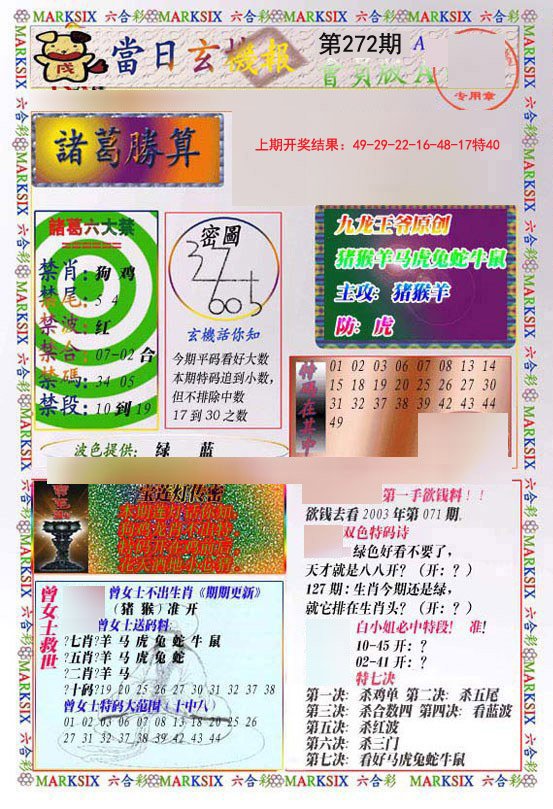 MARKSIX 六合彩 MARKSIX 六合彩 MARKSIX 六合彩 MARKSIX 六合彩 MARKSIX
當日玄機報
第272期 A
專用章
諸葛勝算
上期开奖结果：49-29-22-16-48-17特40
諸葛六大禁
禁肖：狗 鸡
禁尾：5 4
禁波：红
禁合：07-02合
禁碼：34 05
禁段：10到19
密圖
玄機話你知
今期平码看好大数
本期特码追到小数，
但不排除中数
17到30之数
九龙王爷原创
猪猴羊马虎兔蛇牛鼠
主攻：猪猴羊
防：虎
01 02 03 06 07 08 13 14
15 18 19 20 25 26 27 30
31 32 37 38 39 42 43 44
49
波色提供： 绿 蓝
宝莲灯传密
第一手欲钱料！！
欲钱去看2003年第071期.
双色特码诗
绿色好看不要了，
天才就是八八开？（开：？）
127期：生肖今期还是绿，
就它排在生肖头？（开：？）
白小姐必中特段！ 准！
10-45开：？
02-41开：？
特七决
第一决：杀鸡单 第二决：杀五尾
第三决：杀合数四 第四决：看蓝波
第五决：杀红波
第六决：杀三门
第七决：看好马虎兔蛇牛鼠
曾女士救世
曾女士不出生肖《期期更新》
（猪 猴）准开
曾女士送码料：
?七肖?羊 马 虎 兔 蛇 牛 鼠
?五肖?羊 马 虎 兔 蛇
?二肖?羊 马
?十码?19 20 25 26 27 30 31 32 37 38
曾女士特码大范围（十中八）
01 02 03 06 07 08 13 18 20 25 26
27 31 32 37 38 39 42 43 44
MARKSIX 六合彩 MARKSIX 六合彩 MARKSIX 六合彩 MARKSIX 六合彩 MARKSIX